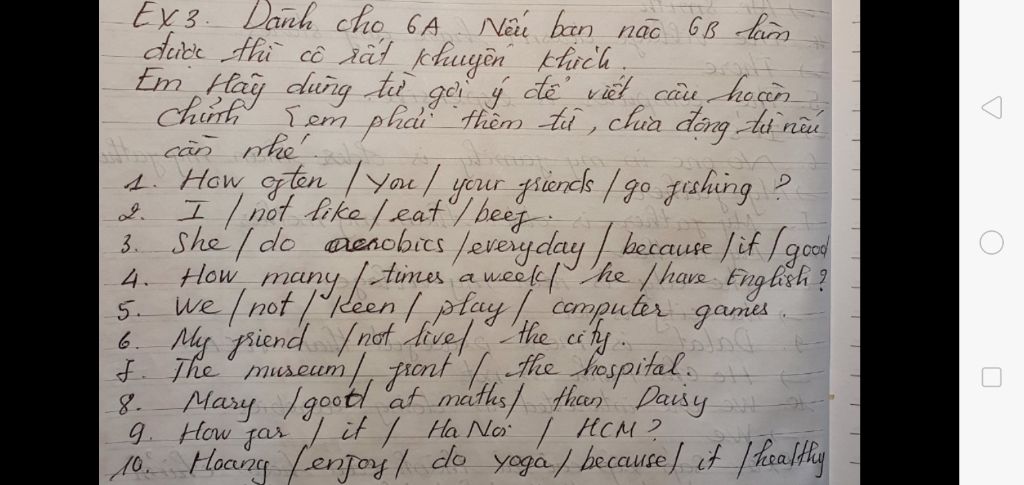 EX3. Dành cho 6A Nếu bạn nào 6B làm
được thì cô rất khuyến khích.
Em Hãy dùng từ gợi ý để viết câu hoàn
chỉnh em phải thêm từ, chia động từ nếu
cần nhé.
1. How often / you / your friends / go fishing?
2. I / not like / eat / beef.
3. She / do aerobics / everyday / because / it / good
4. How many / times a week / he / have English?
5. We / not / keen / play / computer games.
6. My friend / not live / the city.
7. The museum / front / the hospital.
8. Mary / good at maths / than Daisy
9. How far / it / Ha Noi / HCM?
10. Hoang / enjoy / do yoga / because / it / healthy